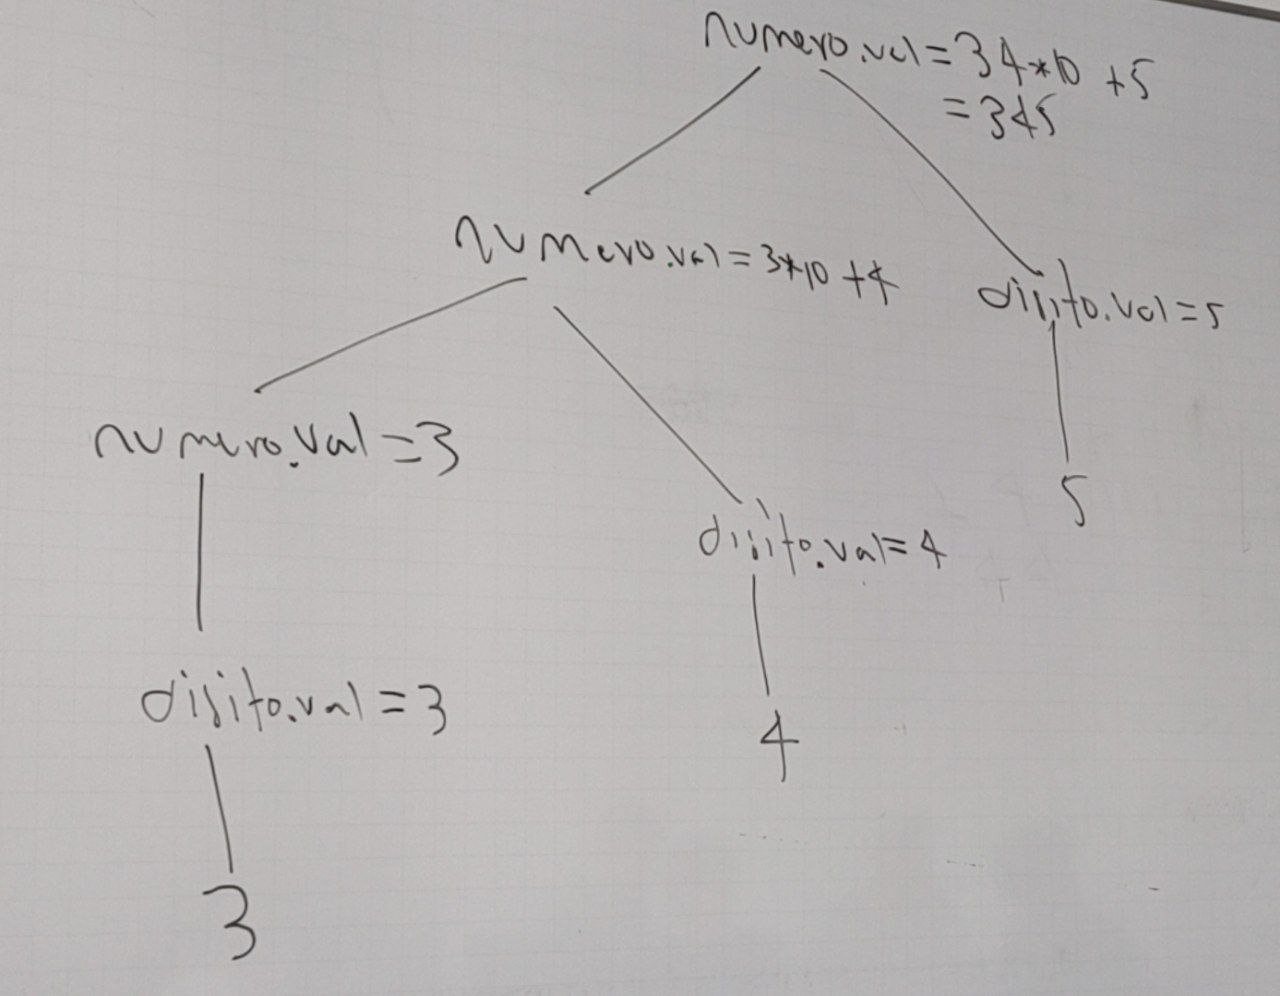 numero.val = 34*10 + 5
= 345
numero.val = 3*10 + 4
digito.val = 5
numero.val = 3
5
digito.val = 4
digito.val = 3
4
3